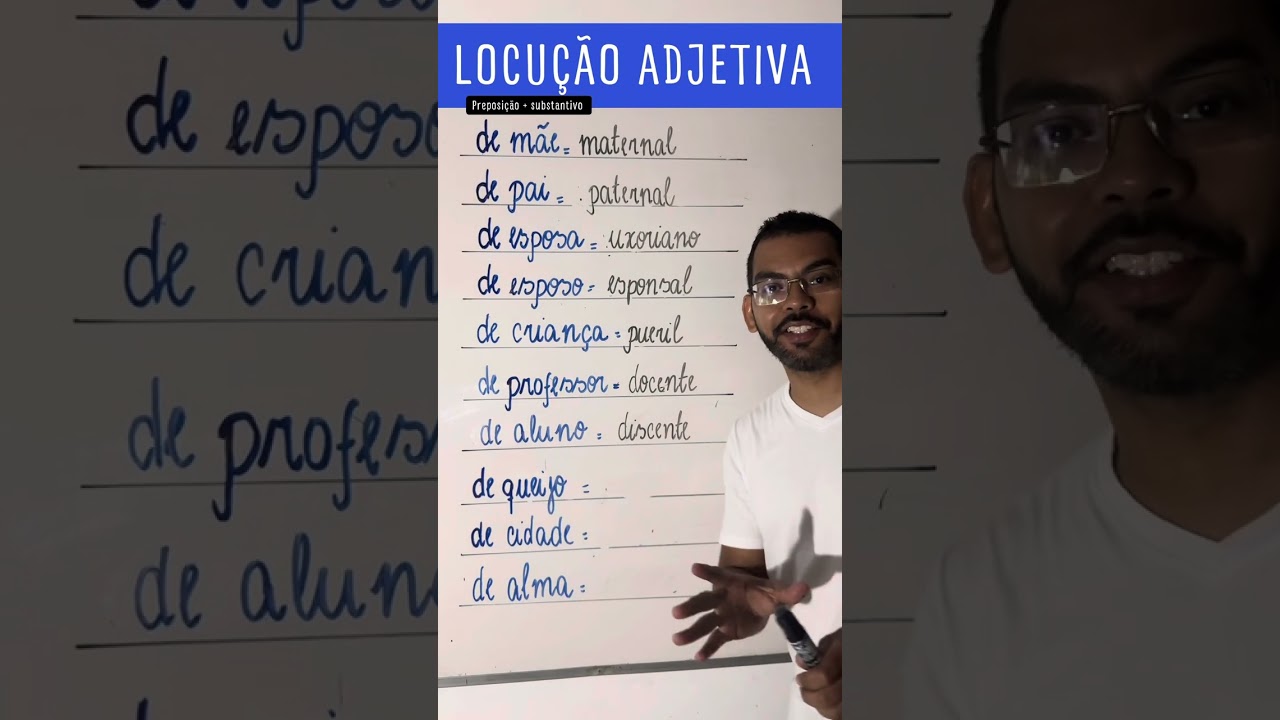 LOCUÇÃO ADJETIVA
Preposição + substantivo
de mãe = maternal
de pai = paternal
de esposa = uxoriano
de esposo = esponsal
de criança = pueril
de professor = docente
de aluno = discente
de queijo =
de cidade =
de alma =